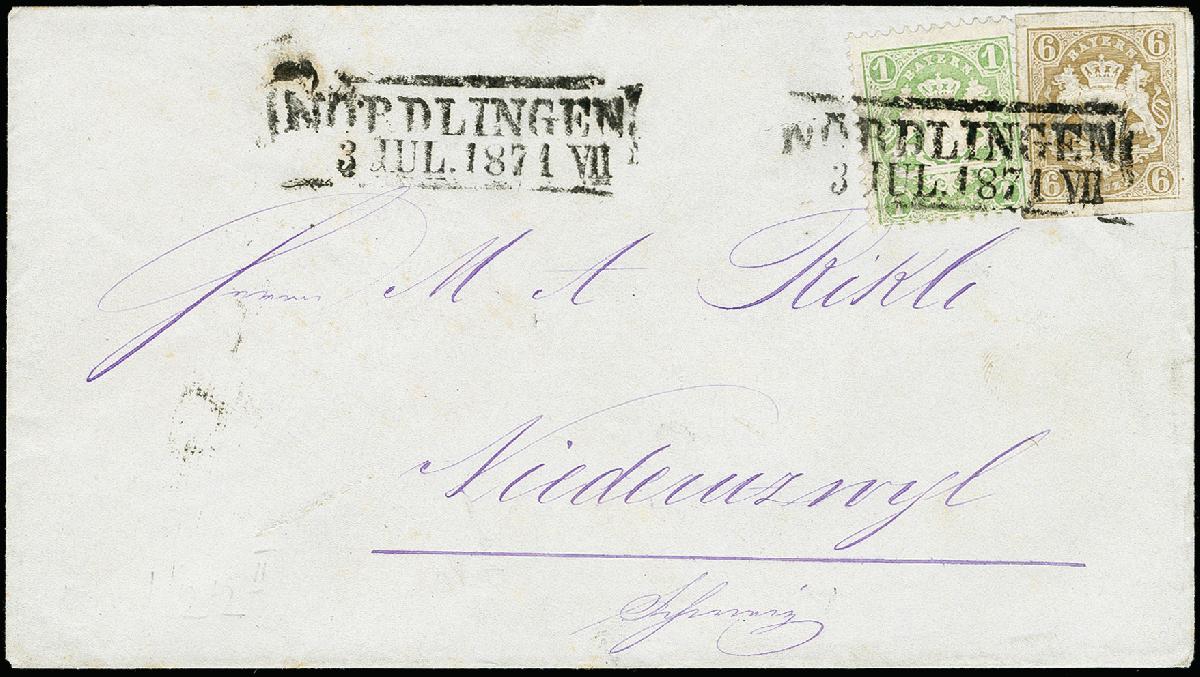 NÖRDLINGEN
3 JUL. 1871 VII
1 BAYERN 1
1
6 BAYERN 6
6 6
NÖRDLINGEN
3 JUL. 1871 VII
Herrn M A Rikli
Niederuzwyl
Schweiz